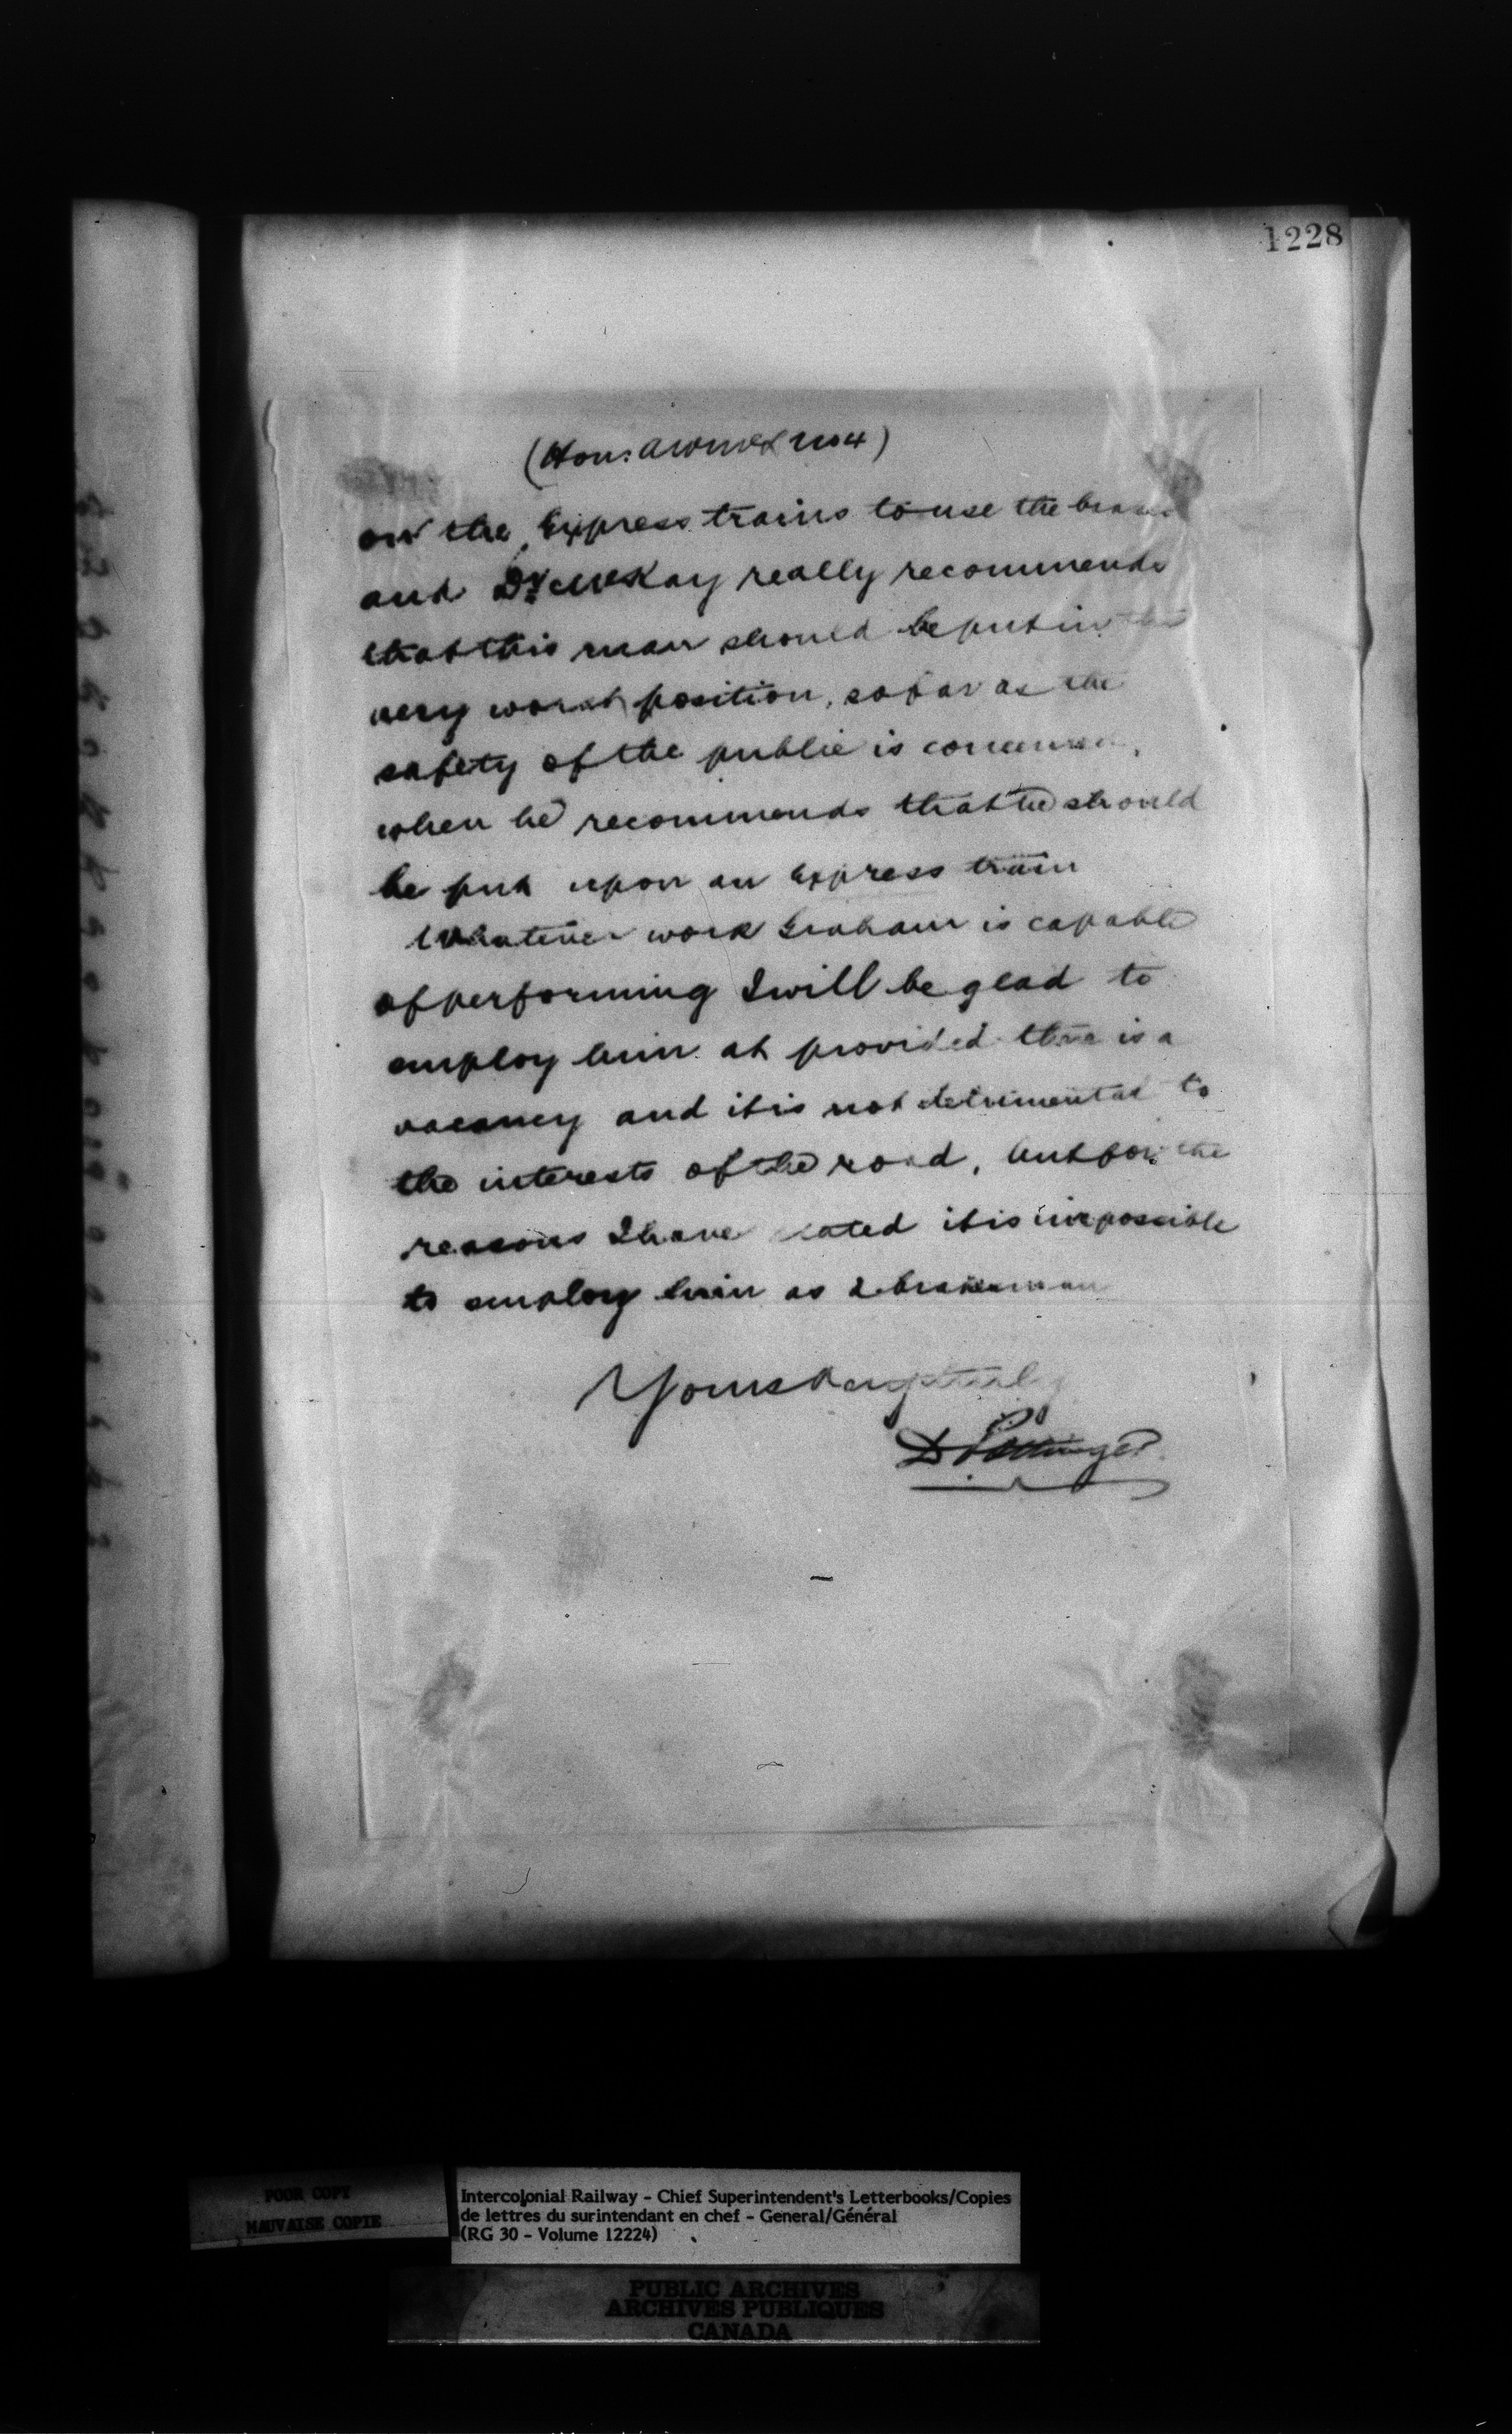 1228
(Hon: A W McL No 4)
on the Express trains to use the brakes
and Dr. McKay really recommends
that this man should be put in the
very worst position, so far as the
safety of the public is concerned,
when he recommends that he should
be put upon an Express train
Whatever work Graham is capable
of performing I will be glad to
employ him at provided there is a
vacancy and it is not detrimental to
the interests of the road, but for the
reasons I have stated it is impossible
to employ him as a brakesman
Yours respectfully
D Pottinger
POOR COPY
MAUVAISE COPIE
Intercolonial Railway - Chief Superintendent's Letterbooks/Copies
de lettres du surintendant en chef - General/Général
(RG 30 - Volume 12224)
PUBLIC ARCHIVES
ARCHIVES PUBLIQUES
CANADA